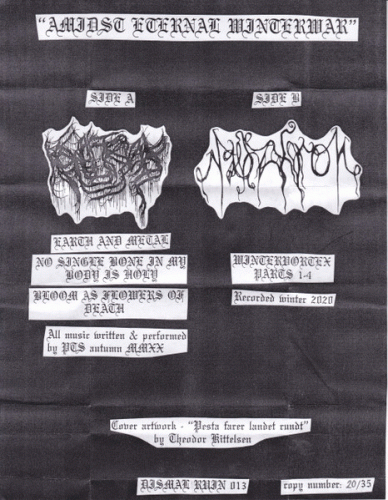 "AMIDST ETERNAL WINTERWAR"
SIDE A
EARTH AND METAL
NO SINGLE BONE IN MY
BODY IS HOLY
BLOOM AS FLOWERS OF
DEATH
All music written & performed
by PTS autumn MMXX
SIDE B
WINTERVORTEX
PARTS 1-4
Recorded winter 2020
Cover artwork - "Pesta farer landet rundt"
by Theodor Kittelsen
DISMAL RUIN 013
copy number: 20/35